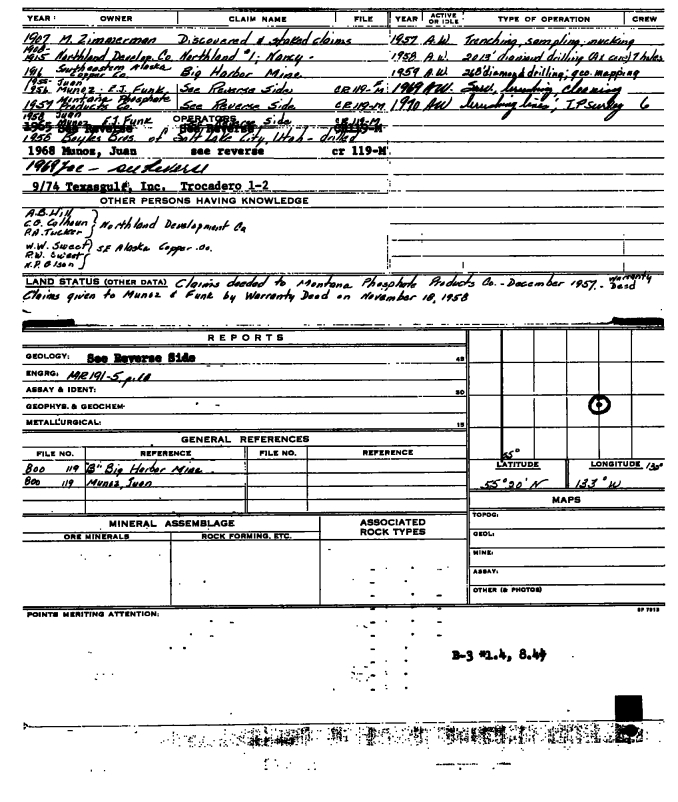 YEAR: OWNER CLAIM NAME FILE YEAR ACTIVE OR IDLE TYPE OF OPERATION CREW
1907 M. Zimmerman Discovered & staked claims 1957 A.W. Trenching, sampling, mucking
1908-1915 Northland Develop. Co. Northland #1; Nancy - 1958 A.W. 2013' diamond drilling 7 holes
1916 Southeastern Alaska Copper Co. Big Harbor Mine 1959 A.W. 268' diamond drilling; geo. mapping
1955-1956 Juan Munoz - E.J. Funk See Reverse Side CR 119-M 1969 A.W.
1957 Montana Phosphate Products Co. See Reverse Side CR 119-M 1970 AW brushing lines; I.P survey 6
1958 Juan Munoz E.J. Funk OPERATORS Side CR 119-M
1965 See Reverse See Reverse CR119-M
1958 Boyles Bros. of Salt Lake City, Utah - drilled
1968 Munoz, Juan see reverse cr 119-M
1969 Joe - see reverse
9/74 Texasgulf, Inc. Trocadero 1-2
OTHER PERSONS HAVING KNOWLEDGE
A.B. Hill
C.G. Calhoun } Northland Development Co
P.A. Tucker
W.W. Sweet
R.W. Sweet } SE Alaska Copper Co.
N.P. Olson
LAND STATUS (OTHER DATA) Claims deeded to Montana Phosphate Products Co. - December 1957. - Warranty Deed
Claims given to Munoz & Funk by Warranty Deed on November 18, 1958
REPORTS
GEOLOGY: See Reverse Side 45
ENGRG: MR 191-5, p.10
ASSAY & IDENT: 30
GEOPHYS. & GEOCHEM-
METALLURGICAL: 15
GENERAL REFERENCES
FILE NO. REFERENCE FILE NO. REFERENCE
800 119 B" Big Harbor Mine
800 119 Munoz, Juan
55°
LATITUDE LONGITUDE 130°
55°20'N 133°W
MAPS
TOPOG:
GEOL:
MINE:
ASSAY:
OTHER (& PHOTOS)
MINERAL ASSEMBLAGE ASSOCIATED ROCK TYPES
ORE MINERALS ROCK FORMING, ETC.
POINTS MERITING ATTENTION: SF 7813
B-3 #1.4, 8.44